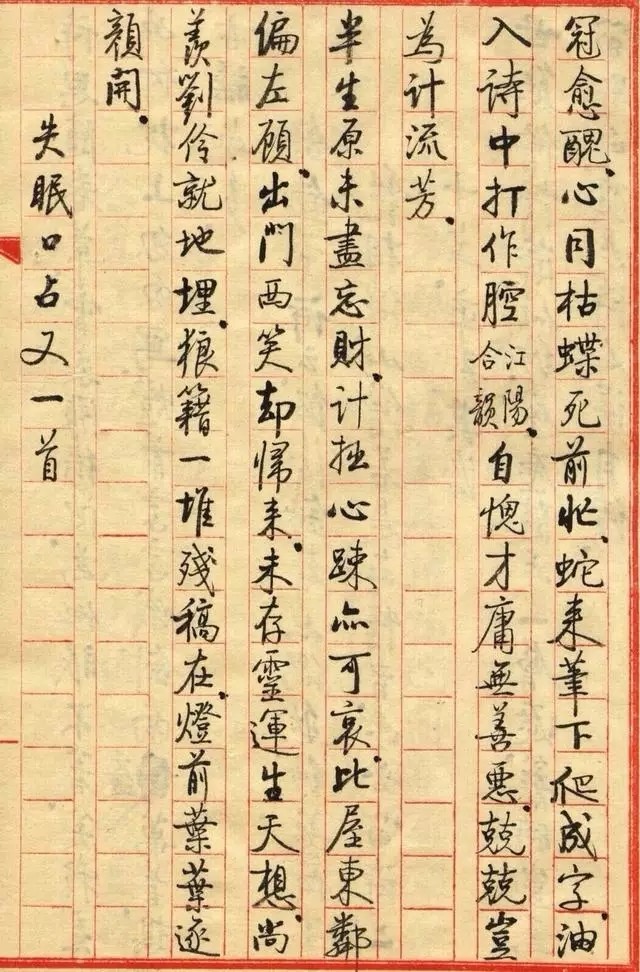 冠愈醜心同枯蝶死前忙蛇来筆下爬成字油
入詩中打作腔江陽合韻自愧才庸無善惡兢兢豈
為計流芳
半生原未盡忘財計拙心疎亦可哀比屋東鄰
偏左顧出門西笑却歸来未存靈運生天想尚
羨劉伶就地埋狼籍一堆殘稿在燈前葉葉逐
顏開
失眠口占又一首